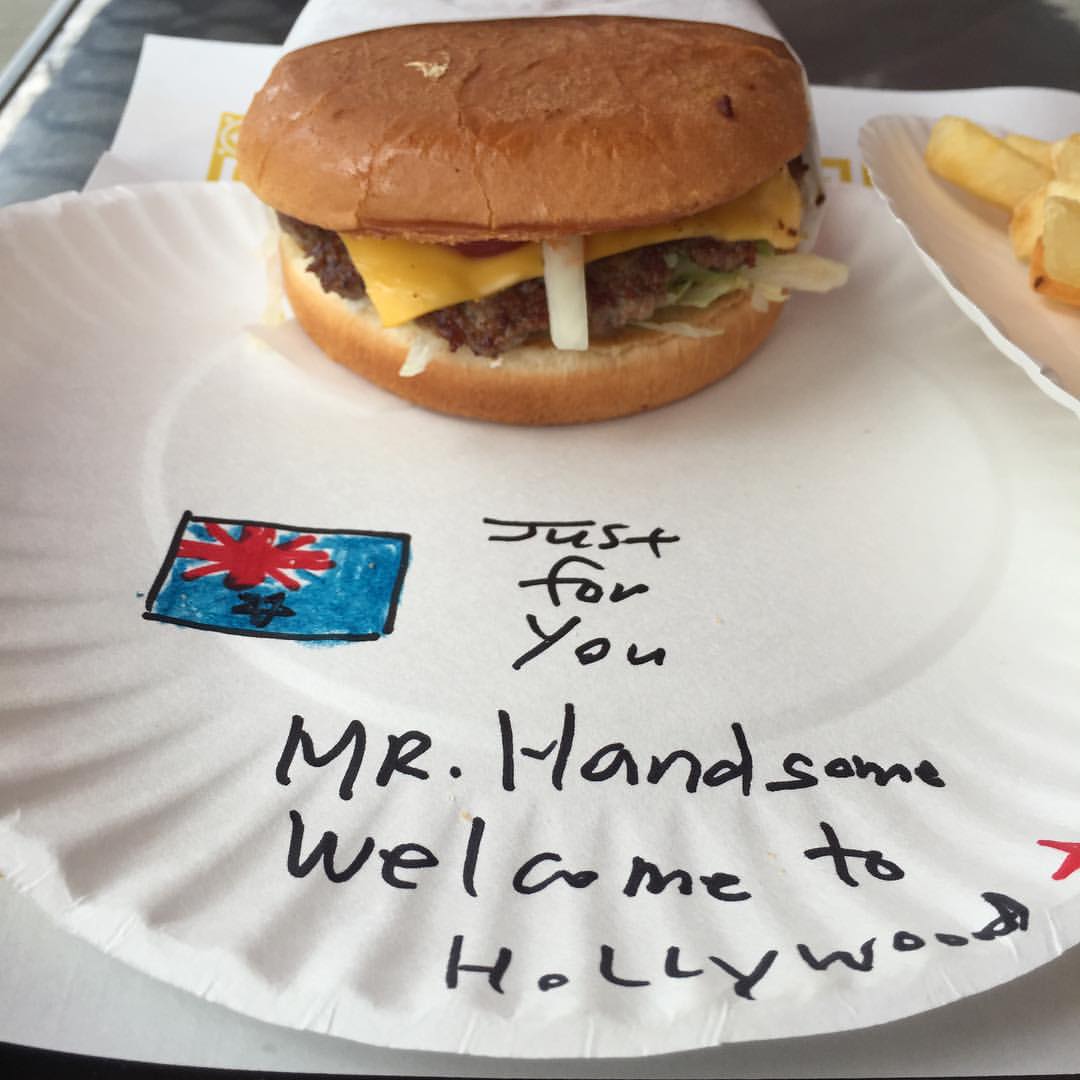 Just
for
You
MR. Handsome
Welcome to
HOLLYWOOD